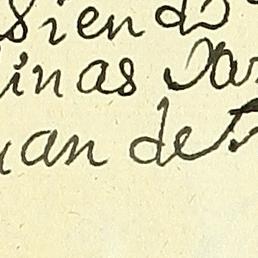 siendo
inas Par
uan de